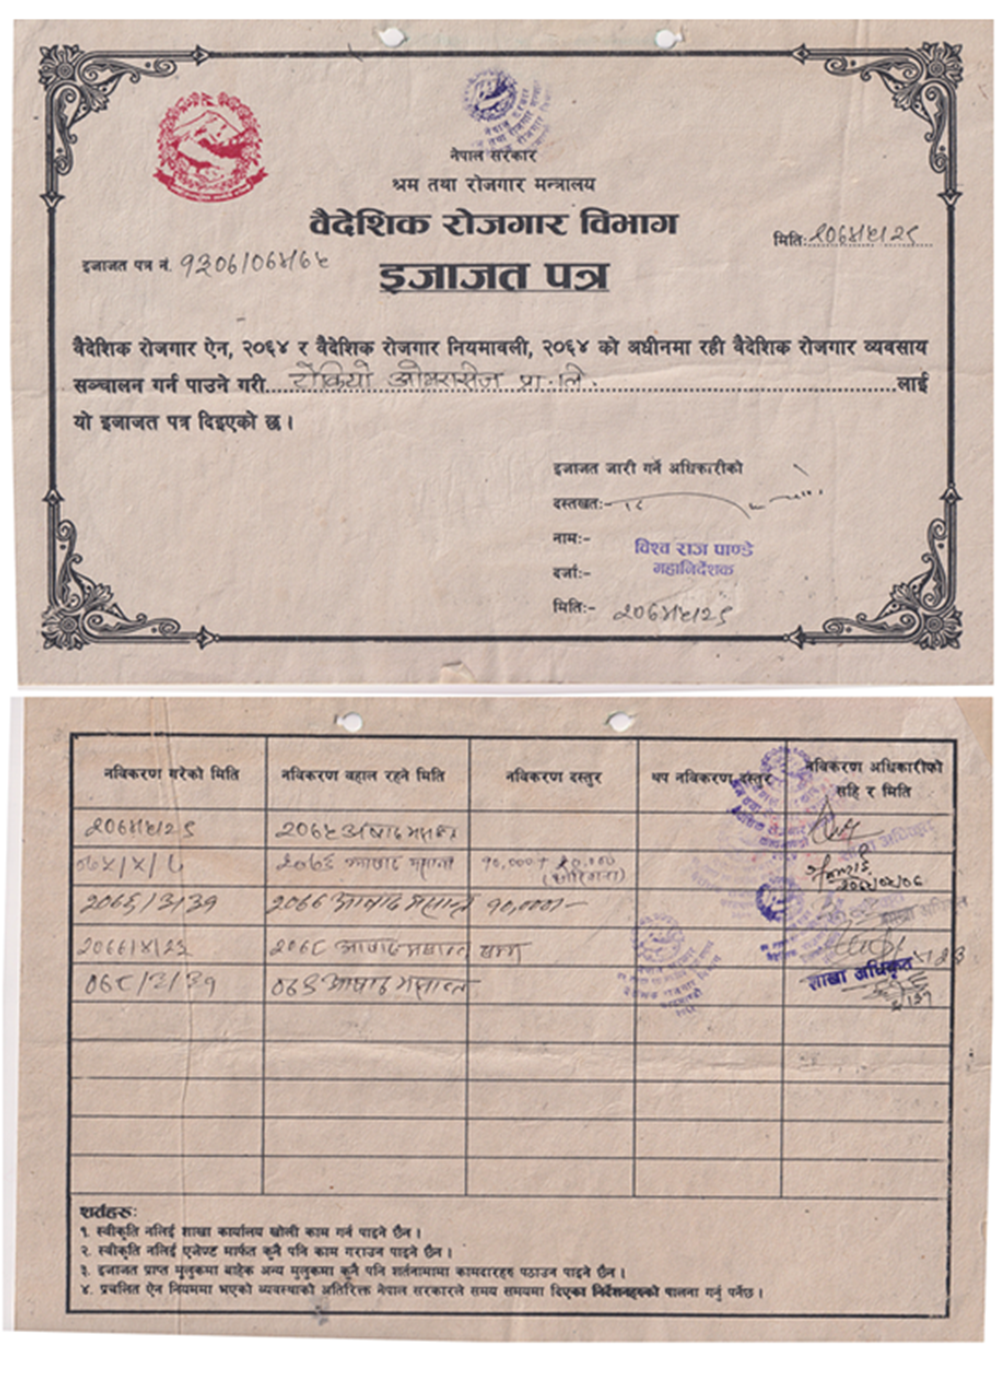 नेपाल सरकार
श्रम तथा रोजगार मन्त्रालय
वैदेशिक रोजगार विभाग
मिति: २०६४।५।२९
इजाजत पत्र नं.
इजाजत पत्र
वैदेशिक रोजगार ऐन, २०६४ र वैदेशिक रोजगार नियमावली, २०६४ को अधीनमा रही वैदेशिक रोजगार व्यवसाय
सञ्चालन गर्न पाउने गरी टोकियो ओभरसेज प्रा.लि. लाई
यो इजाजत पत्र दिइएको छ ।
इजाजत जारी गर्ने अधिकारीको
दस्तखतः-
नामः- विश्व राज पाण्डे
दर्जाः- महानिर्देशक
मितिः- २०६४।५।२९
नविकरण गरेको मिति नविकरण वहाल रहने मिति नविकरण दस्तुर थप नविकरण दस्तुर नविकरण अधिकारीको
सहि र मिति
२०६४।५।२९ २०६५ अषाढ मसान्त
२०६६ आषाढ मसान्त १०,०००+
२०६६/३/३१ २०६७ आषाढ मसान्त १०,०००/-
२०६८ आषाढ मसान्त
०६८/३/३१ ०६९ आषाढ मसान्त
शाखा अधिकृत
शर्तहरुः
१. स्वीकृति नलिई शाखा कार्यालय खोली काम गर्न पाइने छैन ।
२. स्वीकृति नलिई एजेण्ट मार्फत कुनै पनि काम गराउन पाइने छैन ।
३. इजाजत प्राप्त मूलुकमा बाहेक अन्य मुलुकमा कुनै पनि शर्तनामामा कामदारहरु पठाउन पाइने छैन ।
४. प्रचलित ऐन नियममा भएको व्यवस्थाको अतिरिक्त नेपाल सरकारले समय समयमा दिएका निर्देशनहरुको पालना गर्नु पर्नेछ ।